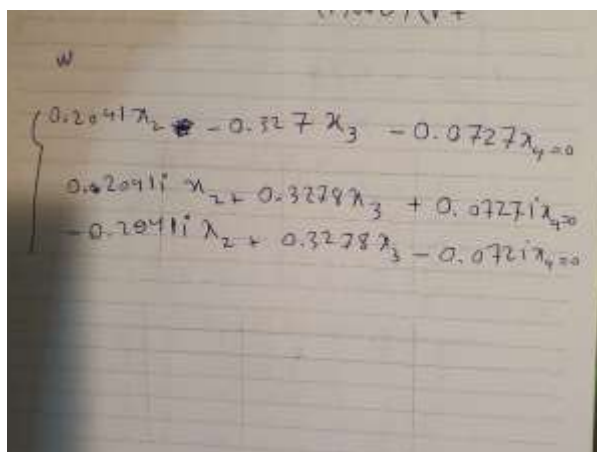 w
0.2041x₂ - 0.327x₃ - 0.0727x₄=0
0.2041i x₂ + 0.3278x₃ + 0.0727i x₄=0
-0.2041i x₂ + 0.3278x₃ - 0.072i x₄=0